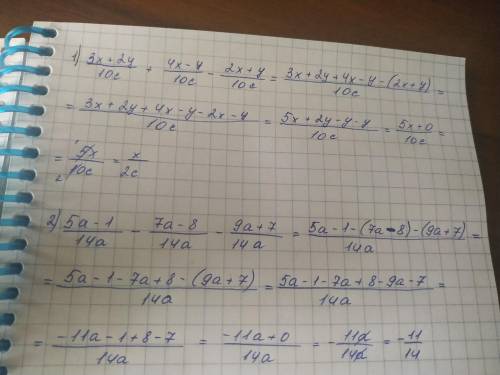 1) (3x+2y)/10c + (4x-y)/10c - (2x+y)/10c = (3x+2y+4x-y-(2x+y))/10c =
= (3x+2y+4x-y-2x-y)/10c = (5x+2y-y-y)/10c = (5x+0)/10c =
= 5x/10c = x/2c
2) (5a-1)/14a - (7a-8)/14a - (9a+7)/14a = (5a-1-(7a-8)-(9a+7))/14a =
= (5a-1-7a+8-(9a+7))/14a = (5a-1-7a+8-9a-7)/14a =
= (-11a-1+8-7)/14a = (-11a+0)/14a = -11a/14a = -11/14